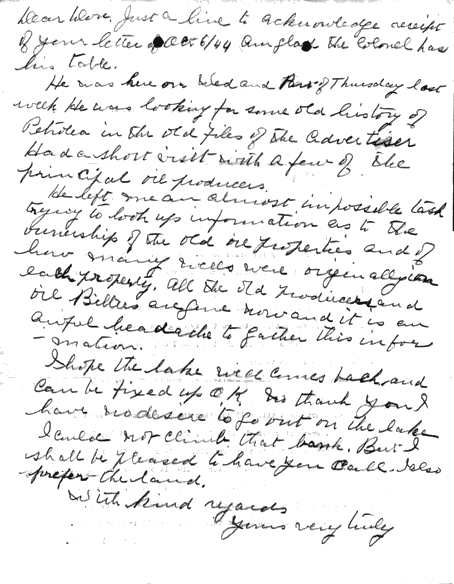 Dear Dove, Just a line to acknowledge receipt
of your letter of Oct 6/44 am glad the Colonel has
his table.
He was here on Wed and Part of Thursday last
week He was looking for some old history of
Petrolea in the old files of the Advertiser
Had a short visit with a few of the
principal oil producers.
He left me an almost impossible task
trying to look up information as to the
ownership of the old oil properties and of
how many wells were originally on
each property. All the old Producers and
oil are gone now and it is an
awful headache to gather this infor
- mation.
I hope the lake well comes back and
can be fixed up O.K. No thank you I
have no desire to go out on the lake
I could not climb that bank. But I
shall be pleased to have you call. I also
prefer the land.
With kind regards
Yours very truly